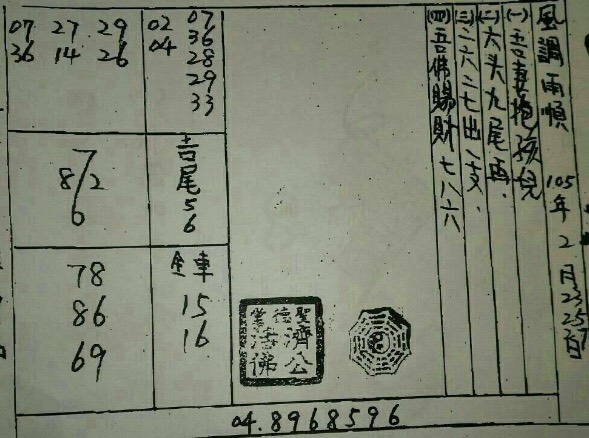 風調雨順 105年2月23 25 27日
(一)吾妻抱孩兒
(二)六头九尾再.
(三)二六二七出一支.
(四)吾佛賜財七八六
07 27 29
36 14 26
02 07
04 36
28
29
33
7
8/2
6
吉尾56
78
86
69
全車
15
16
聖德堂
濟公
活佛
04.8968596